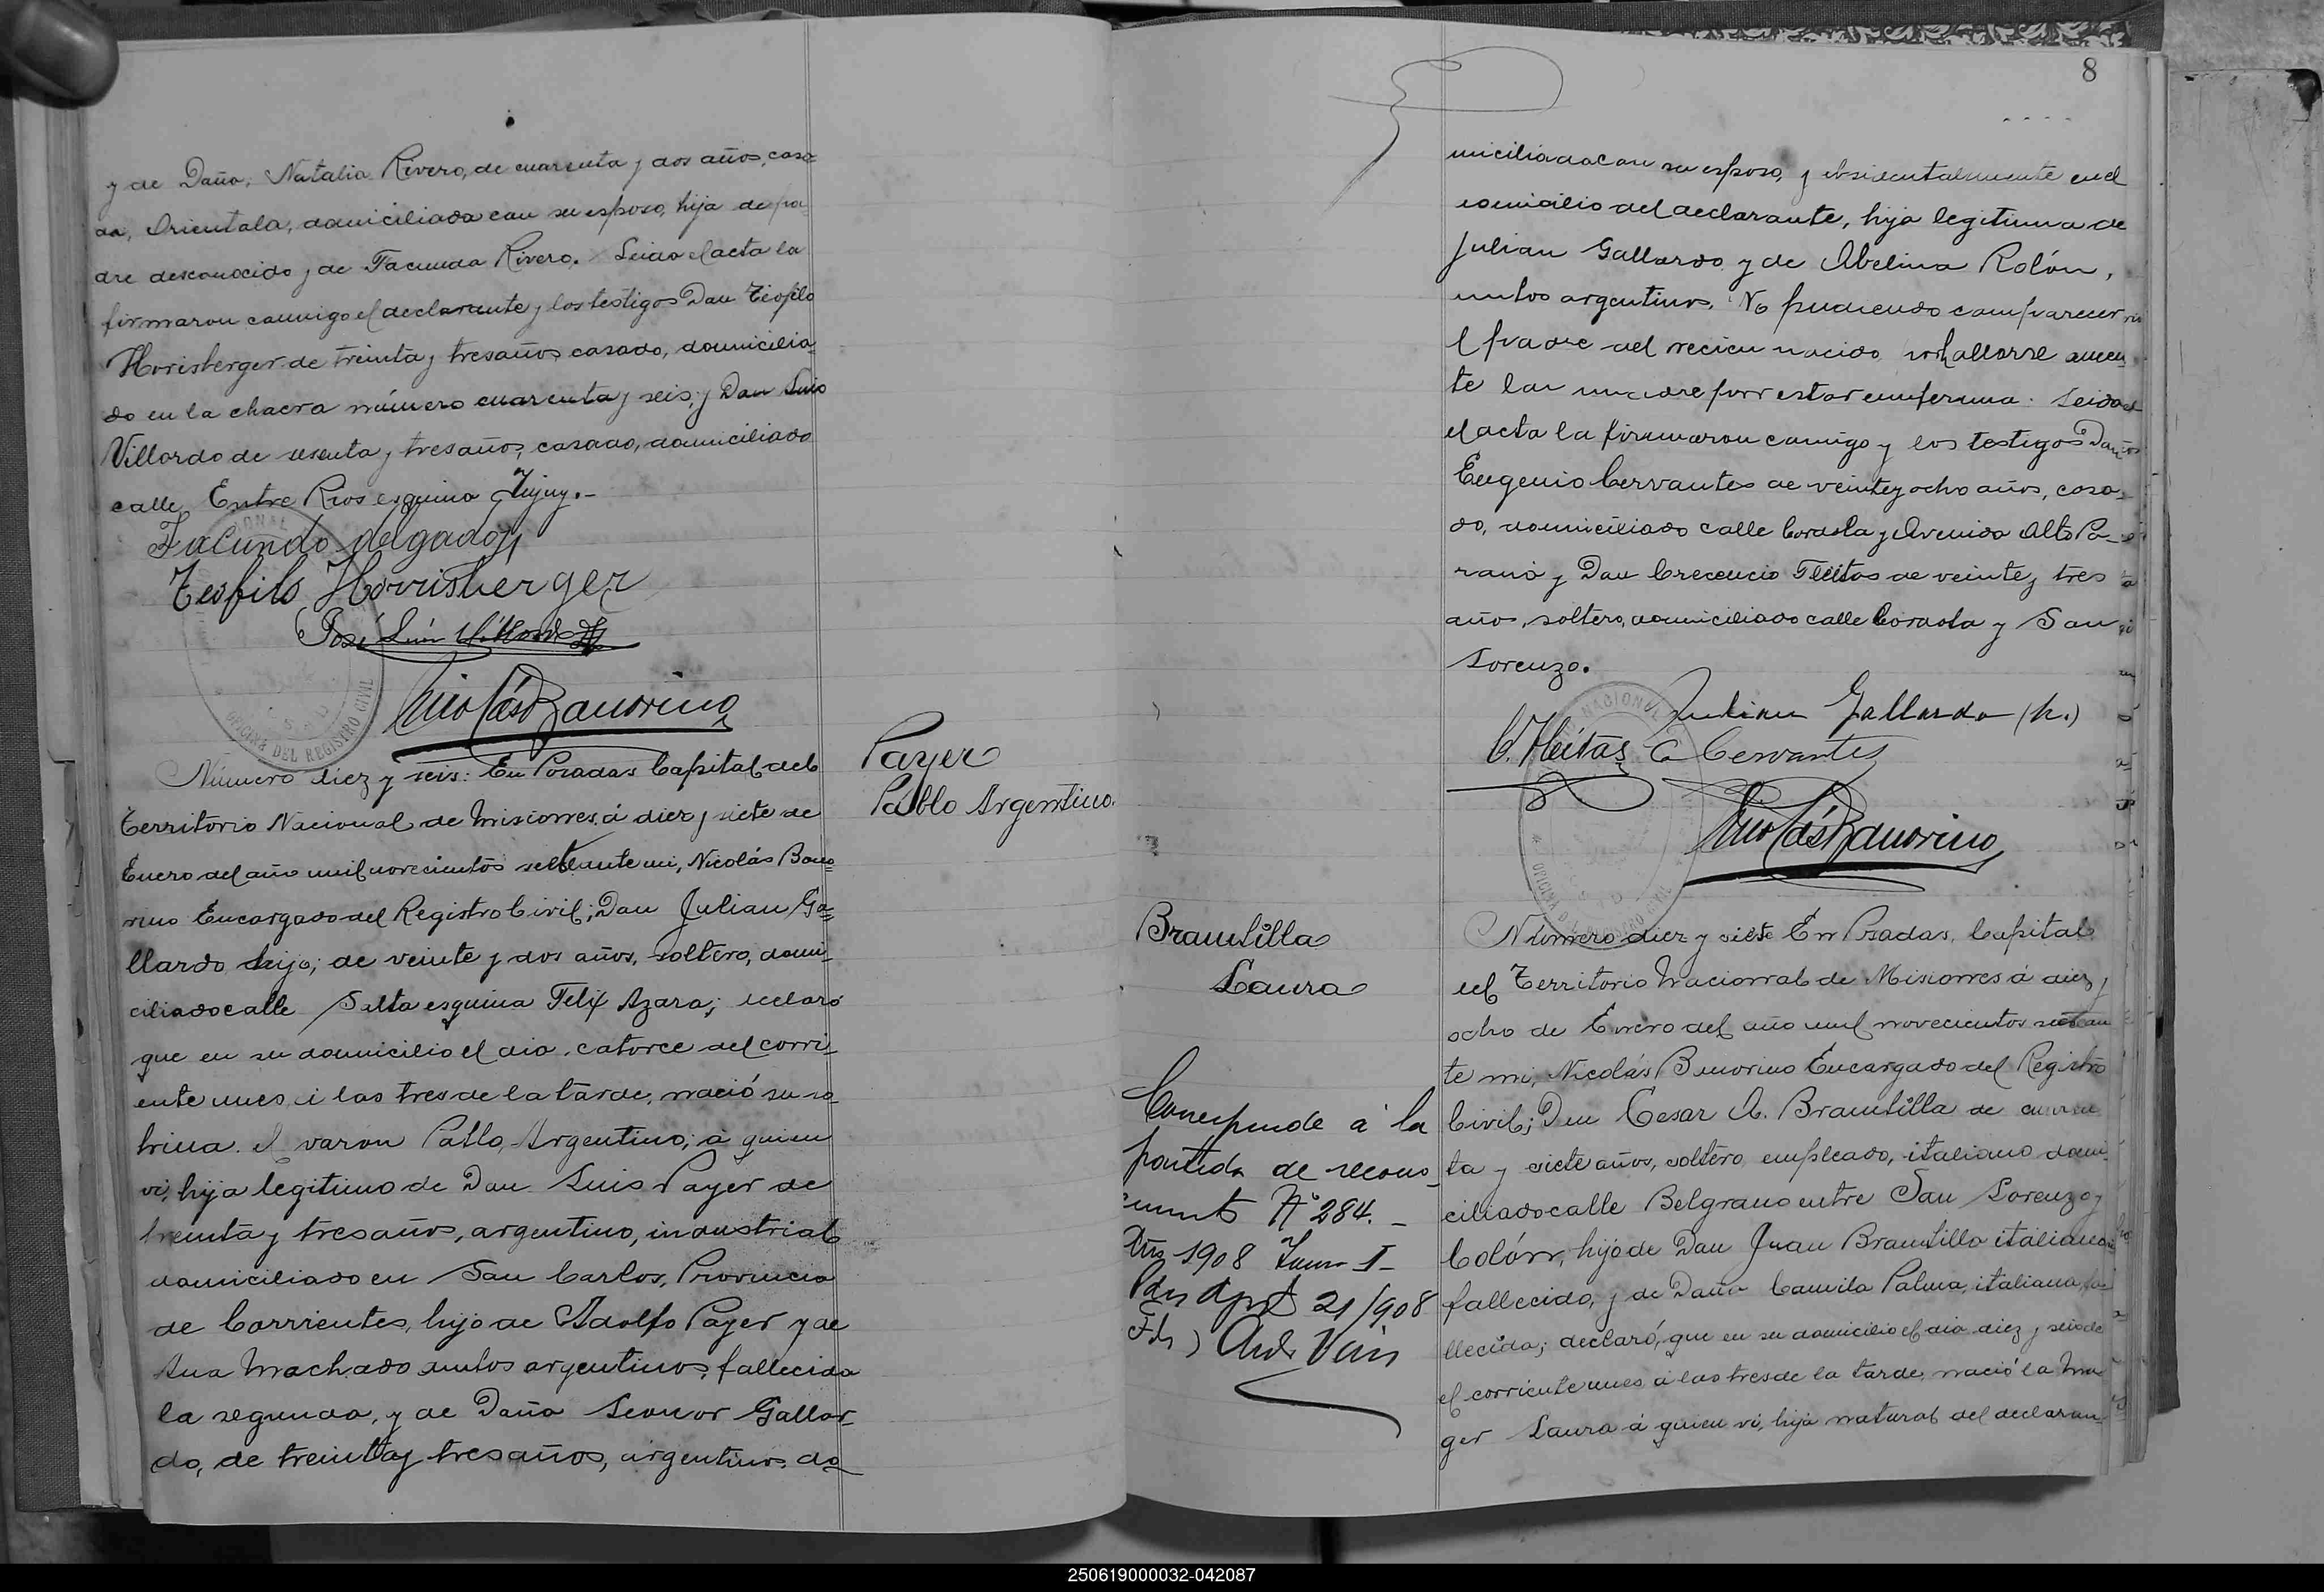 y de Doña Natalia Rivero, de cuarenta y dos años, casa
da, Orientala, domiciliada con su esposo, hija de pa
dre desconocido y de Facunda Rivero. Leida el acta la
firmaron conmigo el declarante y los testigos Don Teofilo
Horisberger de treinta y tres años casado, domicilia
do en la chacra número cuarenta y seis; y Don Luis
Villordo de y tres años, casado, domiciliado
calle Entre Rios esquina Jujuy.-
Facundo delgado
Teofilo Horrisberger
José Luis
Nicolás Bonorino
OFICINA DEL REGISTRO CIVIL
Payer
Pablo Argentino.
Número diez y seis: En Posadas Capital del
Territorio Nacional de Misiones á diez y siete de
Enero del año mil novecientos siete ante mi, Nicolás Bono
rino Encargado del Registro Civil; Don Julian Ga
llardo hijo; de veinte y dos años, soltero, domi
ciliado calle Salta esquina Felix Azara; declaró
que en su domicilio el dia catorce del corri
ente mes á las tres de la tarde, nació su so
brino el varon Pablo Argentino; á quien
vi, hijo legitimo de Don Luis Payer de
treinta y tres años, argentino, industrial
domiciliado en San Carlos, Provincia
de Corrientes, hijo de Adolfo Payer y de
Ana Machado ambos argentinos, fallecida
la segunda, y de Doña Leonor Gallar
do, de treinta y tres años, argentina, do
8
miciliada con su esposo, y accidentalmente en el
domicilio del declarante, hija legitima de
Julian Gallardo y de Abelina Rolón,
ambos argentinos. No pudiendo comparecer
el padre del recien nacido por hallarse ausen
te la madre por estar enferma. Leida
el acta la firmaron conmigo y los testigos Don
Eugenio Cervantes de veinte y ocho años, casa
do, domiciliado calle Cordoba y Avenida Alto Pa
raná y Don Crecencio Fleitas de veinte y tres
años, soltero, domiciliado calle Cordoba y San
Lorenzo.
Julian Gallardo (h.)
C. Fleitas E Cervantes
Nicolás Bonorino
Brambilla
Laura
Corresponde á la
partida de recono
cimiento Nº 284. -
Año 1908 Tomo I -
Pdas Agost 21/908
Fdo)
Número diez y siete En Posadas, Capital
del Territorio Nacional de Misiones á diez y
ocho de Enero del año mil novecientos siete an
te mi, Nicolás Bonorino Encargado del Registro
Civil; Don Cesar A. Brambilla de cuaren
ta y siete años, soltero, empleado, italiano domi
ciliado calle Belgrano entre San Lorenzo y
Colón, hijo de Don Juan Brambilla italiano
fallecido, y de Doña Camila Palma, italiana, fa
llecida; declaró; que en su domicilio el dia diez y seis de
el corriente mes á las tres de la tarde, nació la mu
ger Laura á quien vi, hija natural del declaran
250619000032-042087